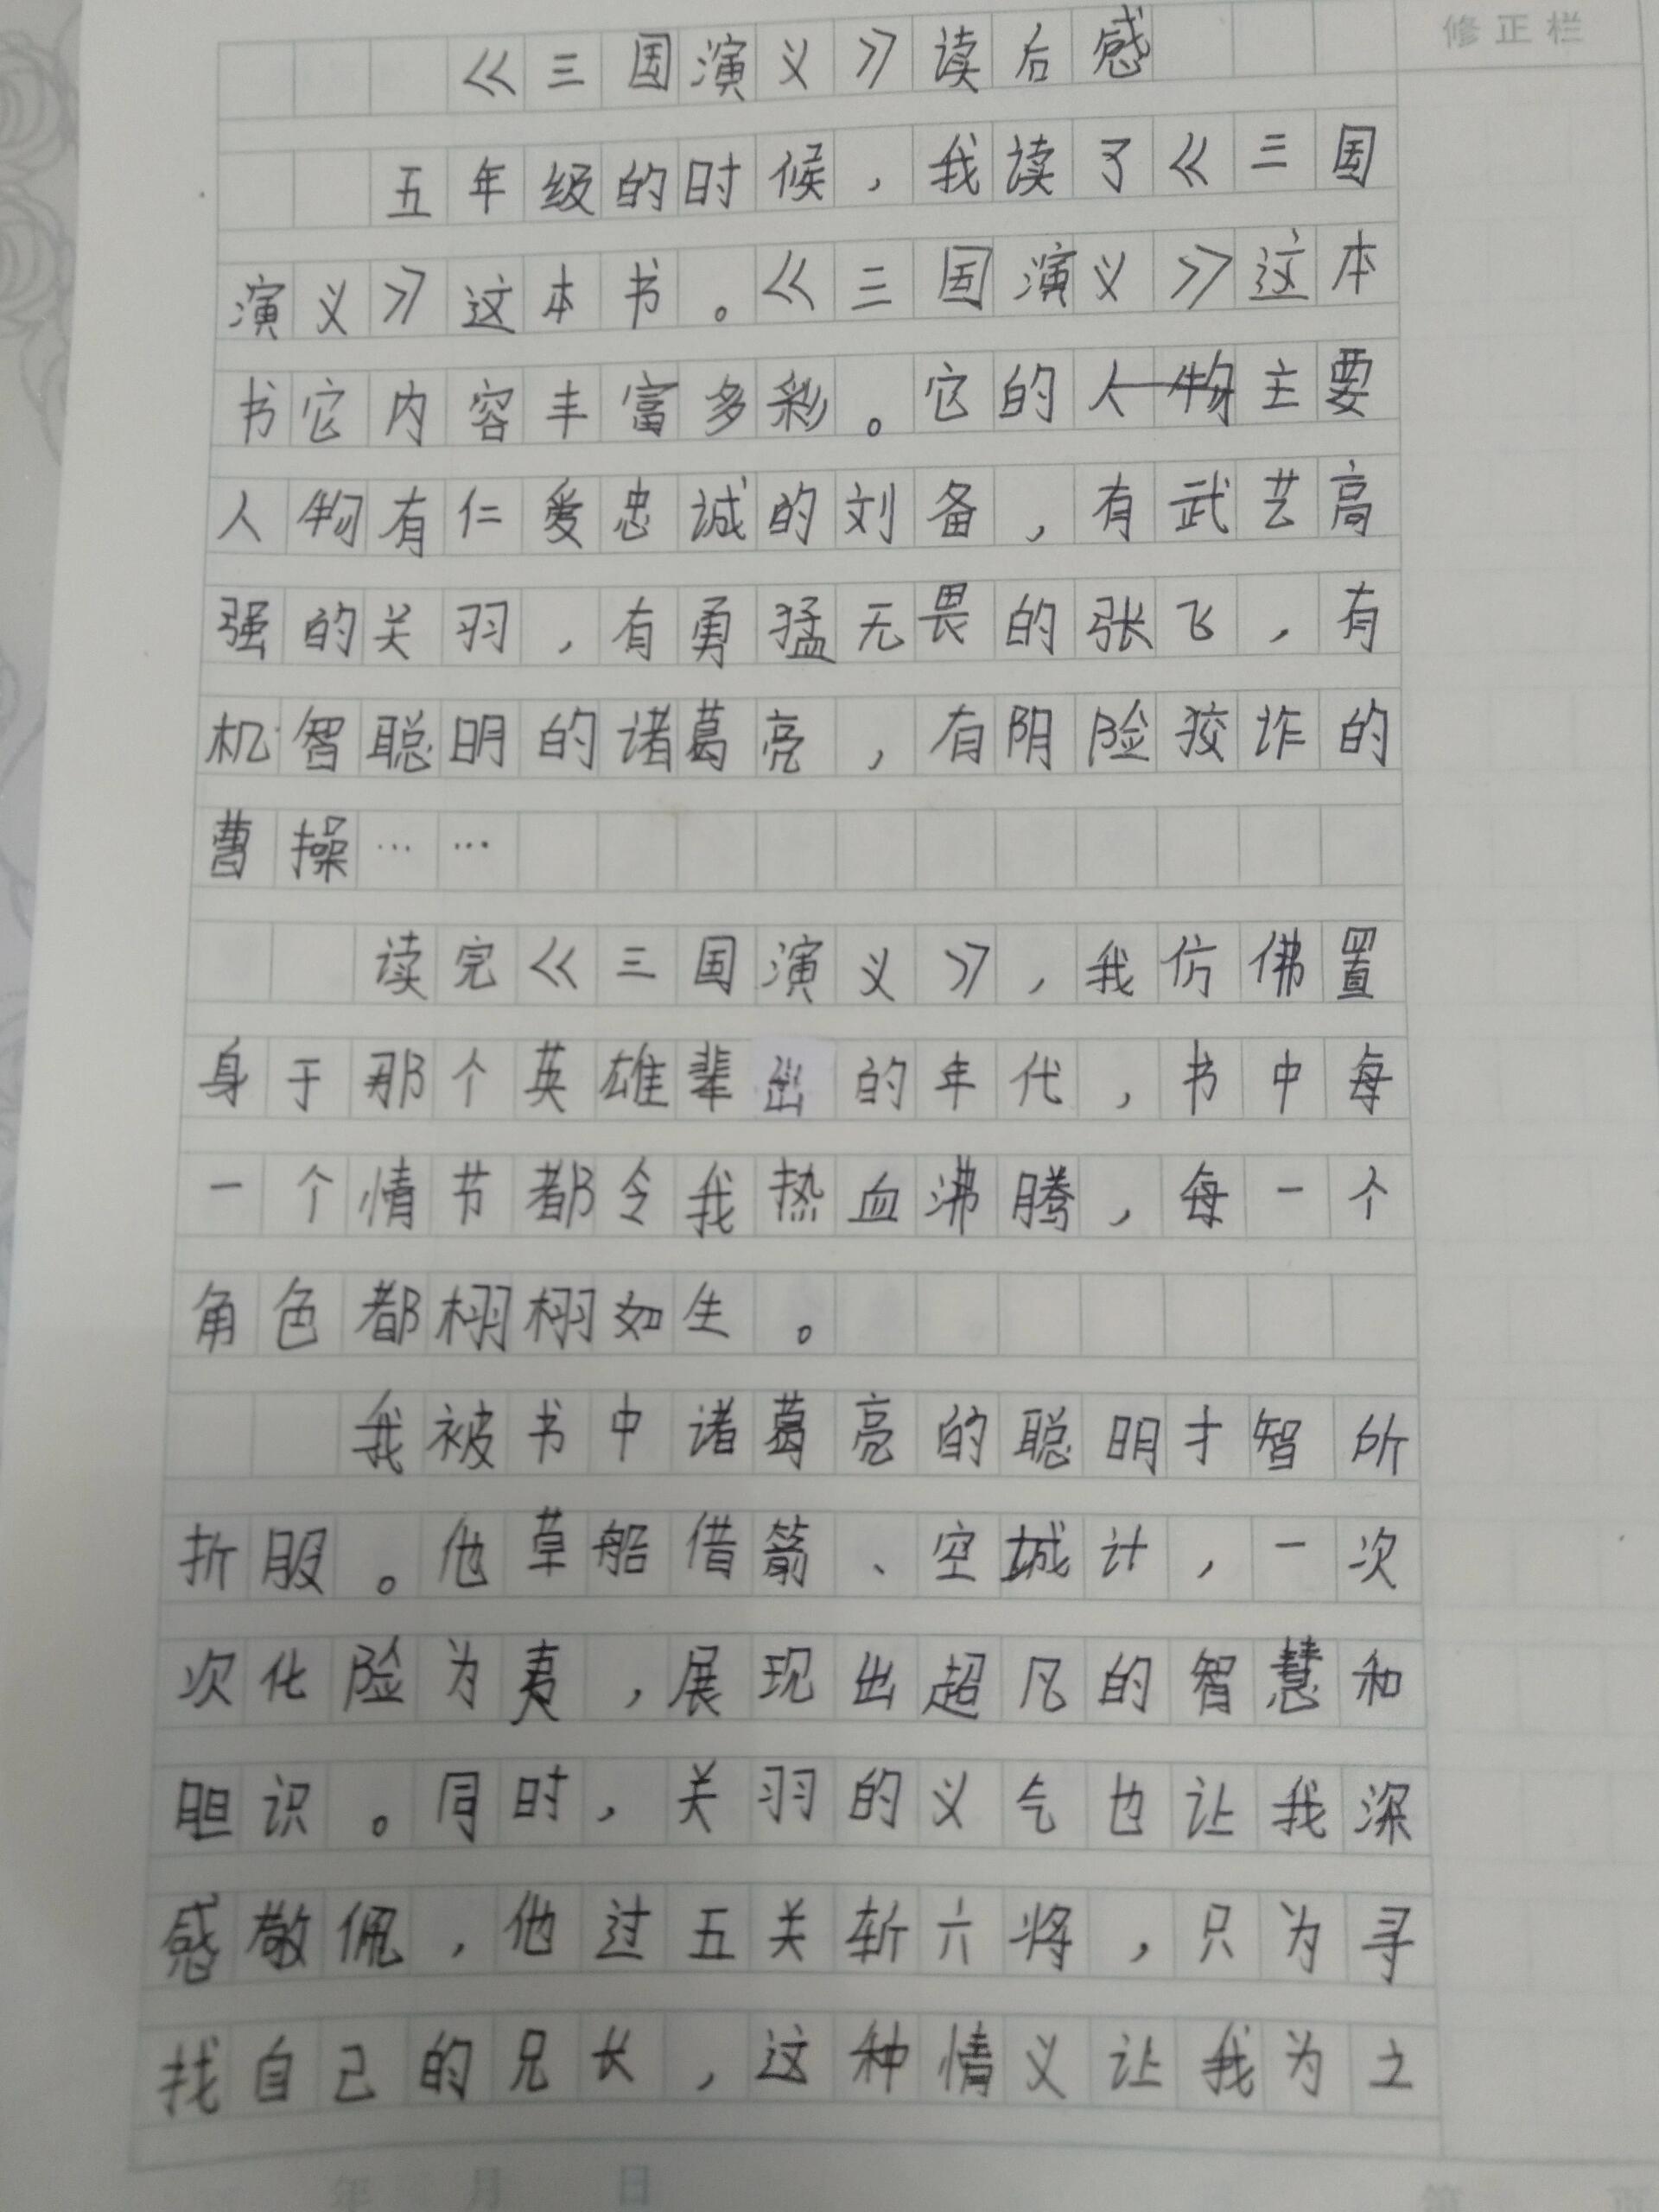 修正栏
《三国演义》读后感
五年级的时候，我读了《三国
演义》这本书。《三国演义》这本
书它内容丰富多彩。它的人物主要
人物有仁爱忠诚的刘备，有武艺高
强的关羽，有勇猛无畏的张飞，有
机智聪明的诸葛亮，有阴险狡诈的
曹操……
读完《三国演义》，我仿佛置
身于那个英雄辈出的年代，书中每
一个情节都令我热血沸腾，每一个
角色都栩栩如生。
我被书中诸葛亮的聪明才智所
折服。他草船借箭、空城计，一次
次化险为夷，展现出超凡的智慧和
胆识。同时，关羽的义气也让我深
感敬佩，他过五关斩六将，只为寻
找自己的兄长，这种情义让我为之
年 月 日